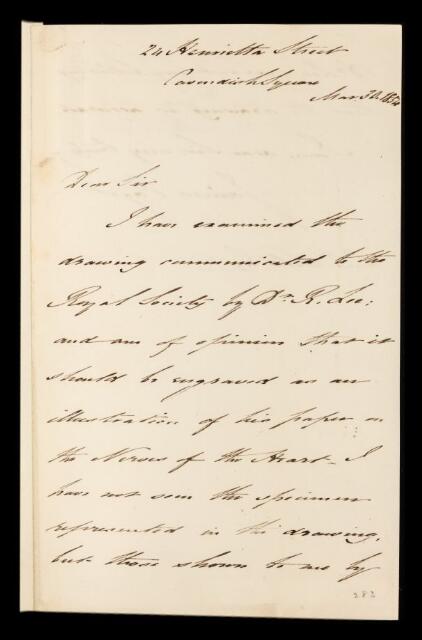 24 Henrietta Street
Cavendish Square
Mar. 30. 1854
Dear Sir
I have examined the
drawing communicated to the
Royal Society by Dr. R. Lee;
and am of opinion that it
should be engraved as an
illustration of his paper on
the Nerves of the Heart - I
have not seen the specimen
represented in the drawing,
but those shown to me by
283